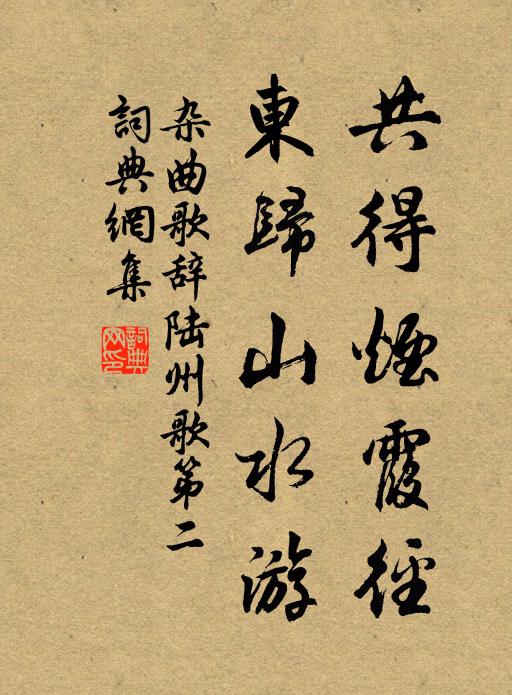 共得煙霞徑
東歸山水游
杂曲歌辞陆州歌第二
詞典網集
詞典网印